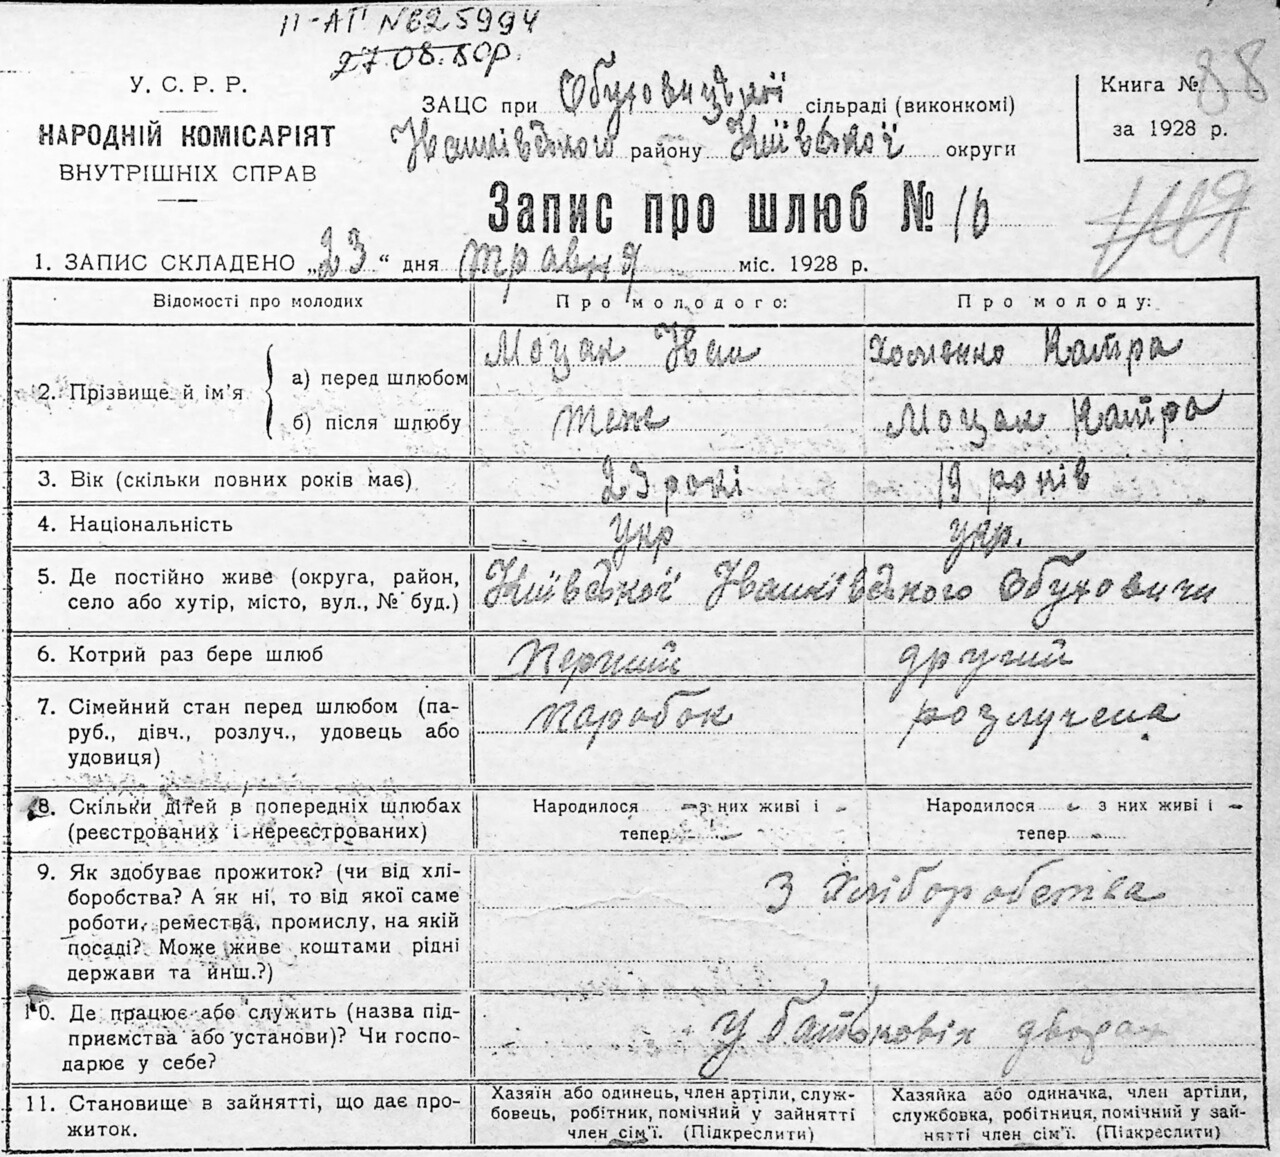 II-АП №625994
27.08.80р.
У. С. Р. Р.
НАРОДНІЙ КОМІСАРІЯТ
ВНУТРІШНІХ СПРАВ
ЗАЦС при Обуховицької сільраді (виконкомі)
Іванківського району Київської округи
Книга № 88
за 1928 р.
Запис про шлюб № 16
1. ЗАПИС СКЛАДЕНО „23“ дня травня міс. 1928 р.
Відомості про молодих
Про молодого:
Про молоду:
2. Прізвище й ім'я
а) перед шлюбом
Моцак Іван
Хоменко Катря
б) після шлюбу
теж
Моцак Катря
3. Вік (скільки повних років має)
23 рокі
19 років
4. Національність
укр
укр.
5. Де постійно живе (округа, район,
село або хутір, місто, вул., № буд.)
Київської Іванківського Обуховичи
6. Котрий раз бере шлюб
Перший
другий
7. Сімейний стан перед шлюбом (па-
руб., дівч., розлуч., удовець або
удовиця)
паробок
розлучена
8. Скільки дітей в попередніх шлюбах
(реєстрованих і нереєстрованих)
Народилося - з них живі і -
тепер -
Народилося - з них живі і -
тепер -
9. Як здобуває прожиток? (чи від хлі-
боробства? А як ні, то від якої саме
роботи, ремества, промислу, на якій
посаді? Може живе коштами рідні
держави та йнш.?)
З хліборобства
10. Де працює або служить (назва під-
приємства або установи)? Чи госпо-
дарює у себе?
У батьковіх дворах
11. Становище в зайнятті, що дає про-
житок.
Хазяїн або одинець, член артіли, служ-
бовець, робітник, помічний у зайнятті
член сім'ї. (Підкреслити)
Хазяйка або одиначка, член артіли,
службовка, робітниця, помічний у зай-
нятті член сім'ї. (Підкреслити)